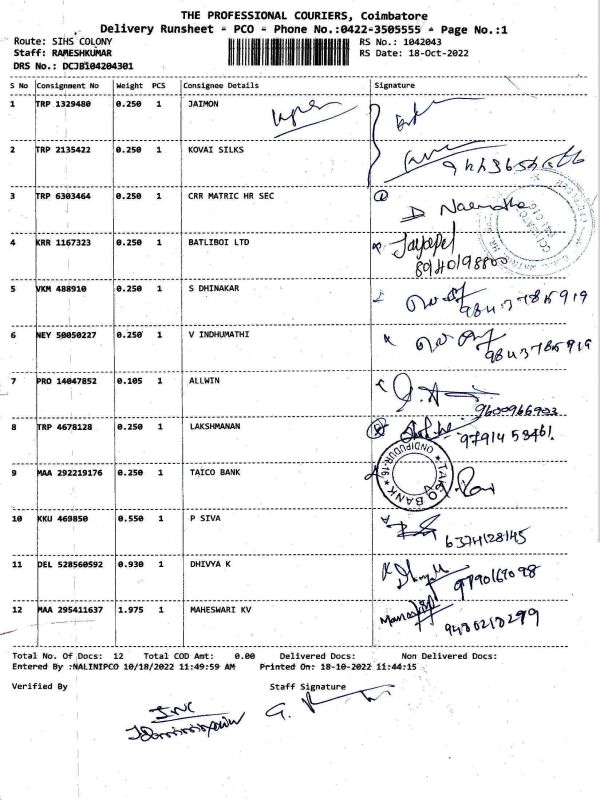 THE PROFESSIONAL COURIERS, Coimbatore
Delivery Runsheet - PCO - Phone No.:0422-3505555 - Page No.:1
Route: SIHS COLONY RS No.: 1042043
Staff: RAMESHKUMAR RS Date: 18-Oct-2022
DRS No.: DCJB104204301
S No Consignment No Weight PCS Consignee Details Signature
1 TRP 1329480 0.250 1 JAIMON
2 TRP 2135422 0.250 1 KOVAI SILKS
3 TRP 6303464 0.250 1 CRR MATRIC HR SEC
4 KRR 1167323 0.250 1 BATLIBOI LTD
5 VKM 488910 0.250 1 S DHINAKAR
9843785919
6 NEY 50050227 0.250 1 V INDHUMATHI
9843785919
7 PRO 14047852 0.105 1 ALLWIN
8 TRP 4678128 0.250 1 LAKSHMANAN
9 MAA 292219176 0.250 1 TAICO BANK
TAICO BANK ONDIPUDUR-16
10 KKU 469850 0.550 1 P SIVA
6374128145
11 DEL 528560592 0.930 1 DHIVYA K
9790167098
12 MAA 295411637 1.975 1 MAHESWARI KV
Total No. Of Docs: 12 Total COD Amt: 0.00 Delivered Docs: Non Delivered Docs:
Entered By :NALINIPCO 10/18/2022 11:49:59 AM Printed On: 18-10-2022 11:44:15
Verified By Staff Signature